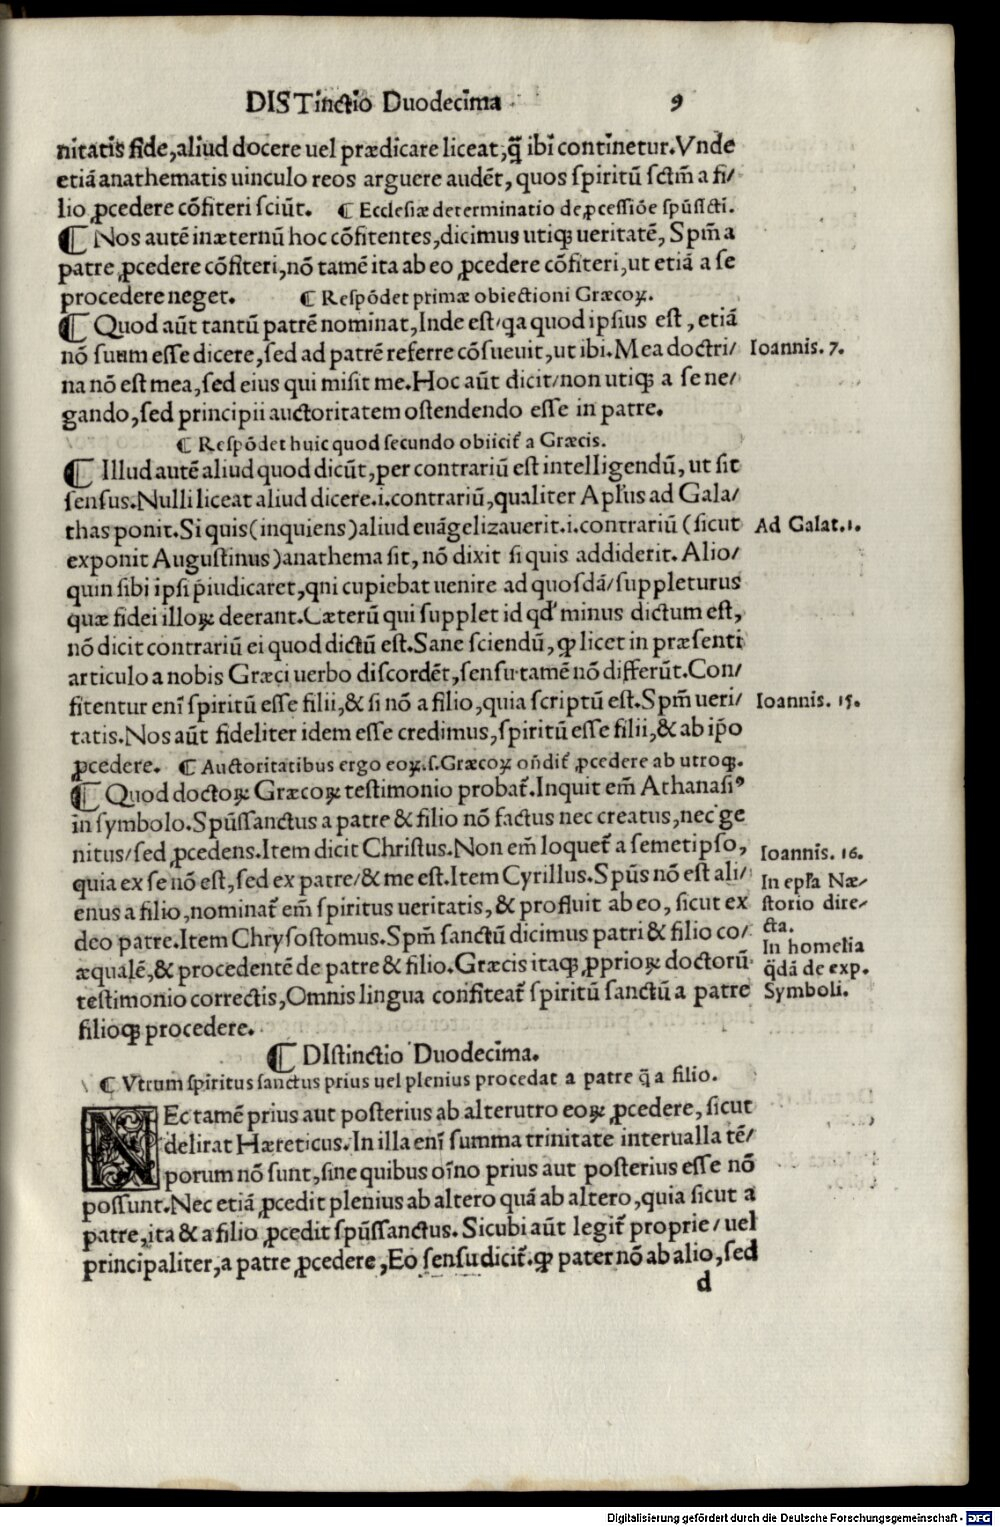 DISTinctio Duodecima 9
nitatis fide,aliud docere uel prædicare liceat,q̃ ibi continetur.Vnde
etiã anathematis uinculo reos arguere audẽt, quos spiritũ sctm̃ a fi/
lio ꝓcedere cõfiteri sciũt. ¶ Ecclesiæ determinatio de ꝓcessiõe spũssctĩ.
¶ Nos autẽ in æternũ hoc cõfitentes,dicimus utiqꝫ ueritatẽ, Spm̃ a
patre ꝓcedere cõfiteri,nõ tamẽ ita ab eo ꝓcedere cõfiteri,ut etiã a se
procedere neget. ¶ Respõdet primæ obiectioni Græcoꝝ.
¶ Quod aũt tantũ patrẽ nominat,Inde est/qa quod ipsius est, etiã
nõ suum esse dicere,sed ad patrẽ referre cõsueuit,ut ibi.Mea doctri/ Ioannis. 7.
na nõ est mea,sed eius qui misit me.Hoc aũt dicit/non utiqꝫ a se ne/
gando,sed principii auctoritatem ostendendo esse in patre.
¶ Respõdet huic quod secundo obiicit̃ a Græcis.
¶ Illud autẽ aliud quod dicũt,per contrariũ est intelligendũ, ut sit
sensus.Nulli liceat aliud dicere.i.contrariũ,qualiter Apl'us ad Gala/
thas ponit.Si quis(inquiens)aliud euãgelizauerit.i.contrariũ (sicut Ad Galat.1.
exponit Augustinus)anathema sit, nõ dixit si quis addiderit. Alio/
quin sibi ipsi p̃iudicaret,qni cupiebat uenire ad quosdã/suppleturus
quæ fidei illoꝝ deerant.Cæterũ qui supplet id qd' minus dictum est,
nõ dicit contrariũ ei quod dictũ est.Sane sciendũ, ꝙ licet in præsenti
articulo a nobis Græci uerbo discordẽt,sensu tamẽ nõ differũt.Con/
fitentur eni spiritũ esse filii,& si nõ a filio,quia scriptũ est.Spm̃ ueri/ Ioannis. 15.
tatis.Nos aũt fideliter idem esse credimus,spiritũ esse filii,& ab ip̃o
ꝓcedere. ¶ Auctoritatibus ergo eoꝝ.s.Græcoꝝ oñdit̃ ꝓcedere ab utroqꝫ.
¶ Quod doctoꝝ Græcoꝝ testimonio probat̃.Inquit em̃ Athanasiꝰ
in symbolo.Spũssanctus a patre & filio nõ factus nec creatus,nec ge
nitus/sed ꝓcedens.Item dicit Christus.Non em̃ loquet̃ a semetipso, Ioannis. 16.
quia ex se nõ est,sed ex patre/& me est.Item Cyrillus.Spũs nõ est ali/ In epl'a Næ/
enus a filio,nominat̃ em̃ spiritus ueritatis,& profluit ab eo, sicut ex storio dire/
deo patre.Item Chrysostomus.Spm̃ sanctũ dicimus patri & filio co/ cta.
In homelia
æqualẽ,& procedentẽ de patre & filio.Græcis itaqꝫ ꝓprioꝝ doctorũ q̃dã de exp.
testimonio correctis,Omnis lingua confiteat̃ spiritũ sanctũ a patre Symboli.
filioqꝫ procedere.
¶ DIstinctio Duodecima.
¶ Vtrum spiritus sanctus prius uel plenius procedat a patre q̃ a filio.
NEc tamẽ prius aut posterius ab alterutro eoꝝ ꝓcedere, sicut
delirat Hæreticus.In illa eni summa trinitate interualla tẽ/
porum nõ sunt,sine quibus oĩno prius aut posterius esse nõ
possunt.Nec etiã ꝓcedit plenius ab altero quã ab altero,quia sicut a
patre,ita & a filio ꝓcedit spũssanctus.Sicubi aũt legit̃ proprie/uel
principaliter,a patre ꝓcedere,Eo sensu dicit̃.ꝙ pater nõ ab alio,sed
d
Digitalisierung gefördert durch die Deutsche Forschungsgemeinschaft - DFG